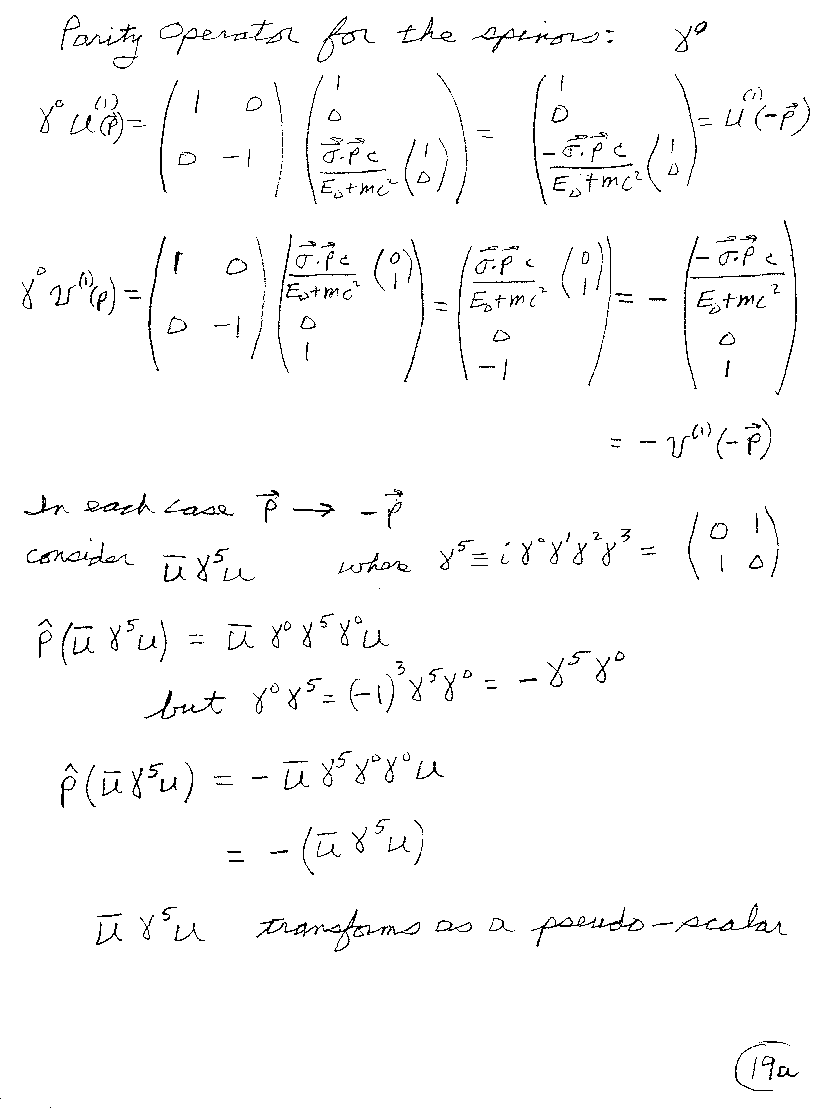 Parity Operator for the spinors: γ⁰
γ⁰ u⁽¹⁾(p⃗) = ( 1 0 ; 0 -1 ) ( 1 ; 0 ; σ⃗·p⃗ c / E₀+mc² ( 1 ; 0 ) ) = ( 1 ; 0 ; -σ⃗·p⃗ c / E₀+mc² ( 1 ; 0 ) ) = u⁽¹⁾(-p⃗)
γ⁰ v⁽¹⁾(p) = ( 1 0 ; 0 -1 ) ( σ⃗·p⃗ c / E₀+mc² ( 0 ; 1 ) ; 0 ; 1 ) = ( σ⃗·p⃗ c / E₀+mc² ( 0 ; 1 ) ; 0 ; -1 ) = - ( -σ⃗·p⃗ c / E₀+mc² ; 0 ; 1 )
= - v⁽¹⁾(-p⃗)
In each case p⃗ → -p⃗
consider u̅γ⁵u where γ⁵ ≡ iγ⁰γ¹γ²γ³ = ( 0 1 ; 1 0 )
P̂(u̅γ⁵u) = u̅ γ⁰γ⁵γ⁰u
but γ⁰γ⁵ = (-1)³γ⁵γ⁰ = -γ⁵γ⁰
P̂(u̅γ⁵u) = - u̅ γ⁵γ⁰γ⁰u
= -(u̅γ⁵u)
u̅γ⁵u transforms as a pseudo-scalar
19a